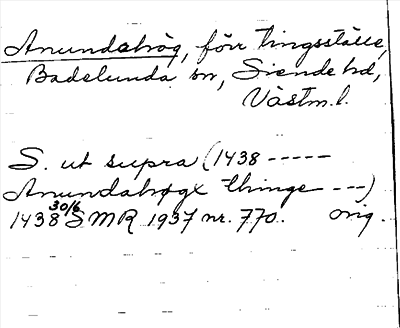 Anundshög, förr tingsställe,
Badelunda sn, Siende hd,
Västm. l.
S. ut supra (1438 -----
Anundahøgx thinge ---)
1438 30/6 SMR 1937 nr. 770. orig.